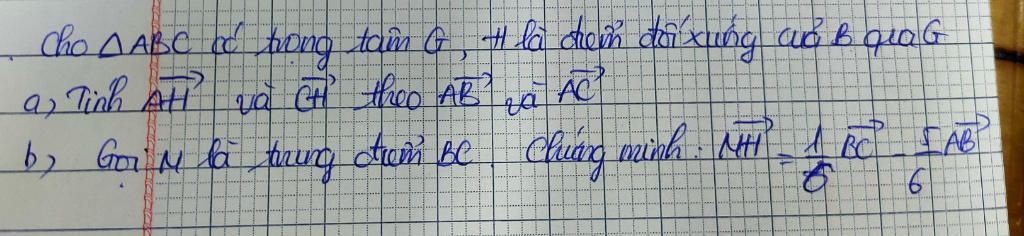 Cho △ABC có trọng tâm G, H là điểm đối xứng của B qua G
a, Tính \overrightarrow{AH} và \overrightarrow{CH} theo \overrightarrow{AB} và \overrightarrow{AC}
b, Gọi M là trung điểm BC. Chứng minh: \overrightarrow{MH} = \frac{1}{6} \overrightarrow{BC} - \frac{5}{6} \overrightarrow{AB}